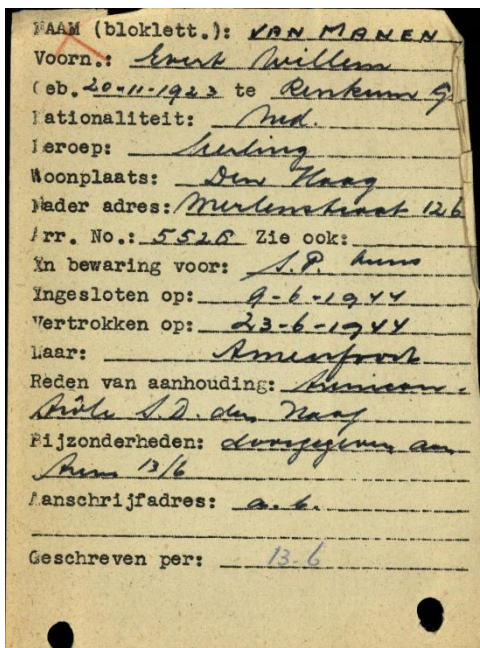 NAAM (bloklett.): VAN MANEN
Voorn.: Evert Willem
Geb. 20-11-1923 te Renkum G.
Nationaliteit: Ned.
Beroep: leerling
Woonplaats: Den Haag
Nader adres: Merlenstraat 126
Arr. No.: 5528 Zie ook:
In bewaring voor: S.P.
Ingesloten op: 9-6-1944
Vertrokken op: 23-6-1944
Naar: Amersfoort
Reden van aanhouding:
S.D. den Haag
Bijzonderheden: doorgegeven aan
13/6
Aanschrijfadres: a.b.
Geschreven per: 13-6